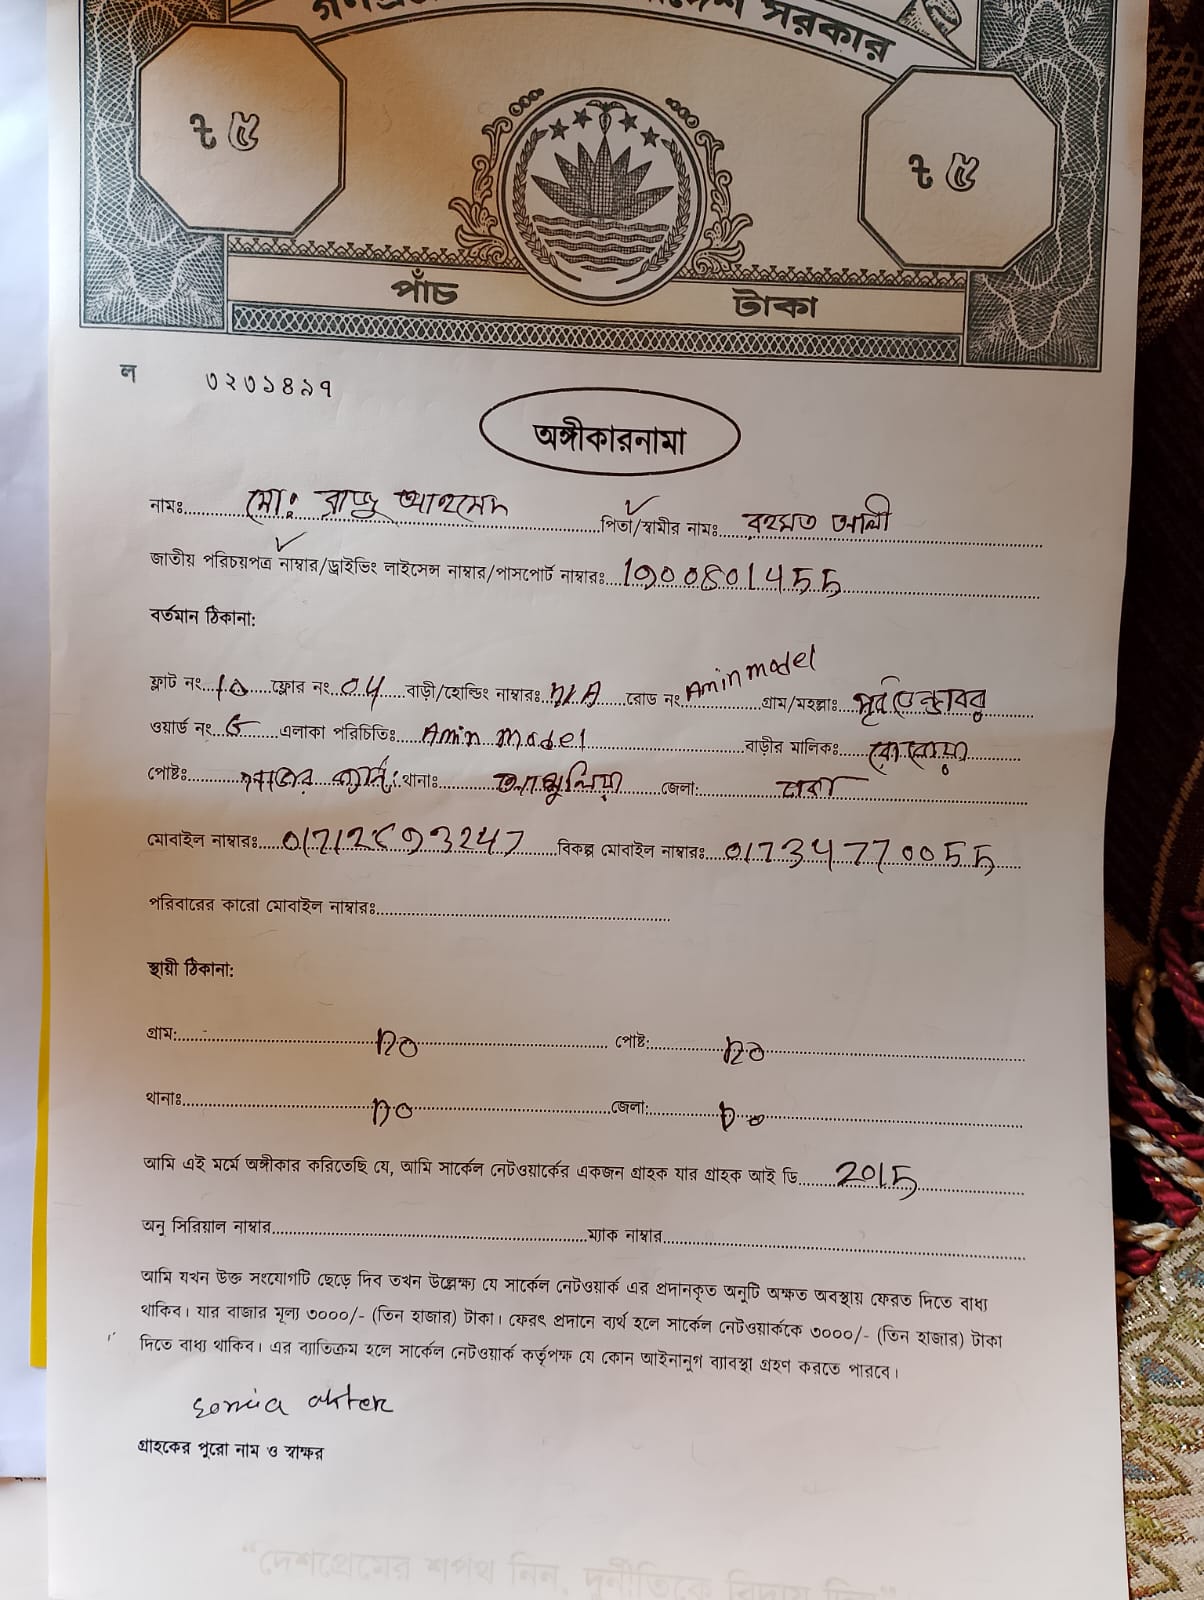 সরকার
৳ ৫
৳ ৫
পাঁচ টাকা
ল ৩২৩১৪৯৭
অঙ্গীকারনামা
নামঃ মোঃ রাজু আহমেদ পিতা/স্বামীর নামঃ রহমত আলী
জাতীয় পরিচয়পত্র নাম্বার/ড্রাইভিং লাইসেন্স নাম্বার/পাসপোর্ট নাম্বারঃ 1900801455
বর্তমান ঠিকানা:
ফ্লাট নং 10 ফ্লোর নং 04 বাড়ী/হোল্ডিং নাম্বারঃ N/A রোড নং Amin model গ্রাম/মহল্লাঃ
ওয়ার্ড নং এলাকা পরিচিতিঃ Amin model বাড়ীর মালিকঃ
পোষ্টঃ থানাঃ আশুলিয়া জেলা: ঢাকা
মোবাইল নাম্বারঃ বিকল্প মোবাইল নাম্বারঃ 01734770055
পরিবারের কারো মোবাইল নাম্বারঃ
স্থায়ী ঠিকানা:
গ্রাম: no পোষ্ট: no
থানাঃ no জেলা: no
আমি এই মর্মে অঙ্গীকার করিতেছি যে, আমি সার্কেল নেটওয়ার্কের একজন গ্রাহক যার গ্রাহক আই ডি 2015
অনু সিরিয়াল নাম্বার ম্যাক নাম্বার
আমি যখন উক্ত সংযোগটি ছেড়ে দিব তখন উল্লেক্ষ্য যে সার্কেল নেটওয়ার্ক এর প্রদানকৃত অনুটি অক্ষত অবস্থায় ফেরত দিতে বাধ্য
থাকিব। যার বাজার মূল্য ৩০০০/- (তিন হাজার) টাকা। ফেরৎ প্রদানে ব্যর্থ হলে সার্কেল নেটওয়ার্ককে ৩০০০/- (তিন হাজার) টাকা
দিতে বাধ্য থাকিব। এর ব্যাতিক্রম হলে সার্কেল নেটওয়ার্ক কর্তৃপক্ষ যে কোন আইনানুগ ব্যাবস্থা গ্রহণ করতে পারবে।
sonia akter
গ্রাহকের পুরো নাম ও স্বাক্ষর
“দেশপ্রেমের শপথ নিন, দুর্নীতিকে বিদায় দিন”